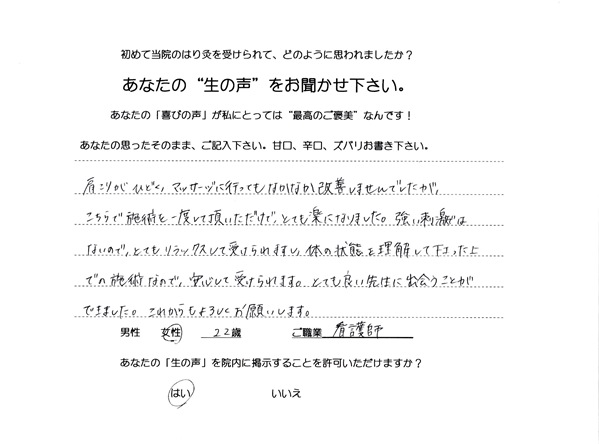 初めて当院のはり灸を受けられて、どのように思われましたか？
あなたの“生の声”をお聞かせ下さい。
あなたの「喜びの声」が私にとっては“最高のご褒美”なんです！
あなたの思ったそのまま、ご記入下さい。甘口、辛口、ズバリお書き下さい。
肩こりがひどく、マッサージに行ってもなかなか改善しませんでしたが、
こちらで施術を一度して頂いただけで、とても楽になりました。強い刺激は
ないので、とてもリラックスして受けられますし、体の状態を理解して下さった上
での施術なので、安心して受けられます。とても良い先生に出会うことが
できました。これからもよろしくお願いします。
男性 女性 22歳 ご職業 看護師
あなたの「生の声」を院内に掲示することを許可いただけますか？
はい いいえ